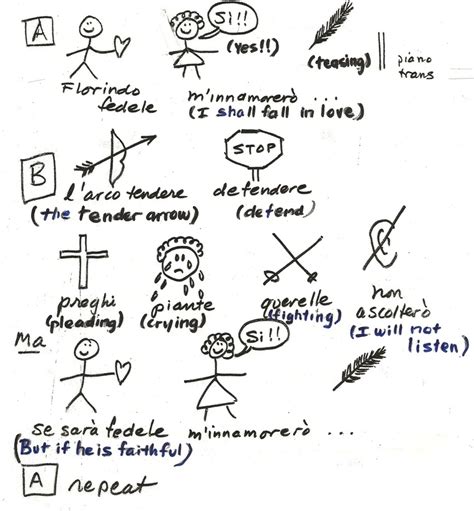 A
SÌ!!
(yes!!)
(teasing)
piano
trans
Florindo
fedele
m'innamorerò ...
(I shall fall in love)
B
STOP
l'arco tendere
(the tender arrow)
defendere
(defend)
preghi
(pleading)
piante
(crying)
querelle
(fighting)
non
ascolterò
(I will not
listen)
Ma
Sì!!
se sarà fedele
(But if he is faithful)
m'innamorerò ...
A
repeat